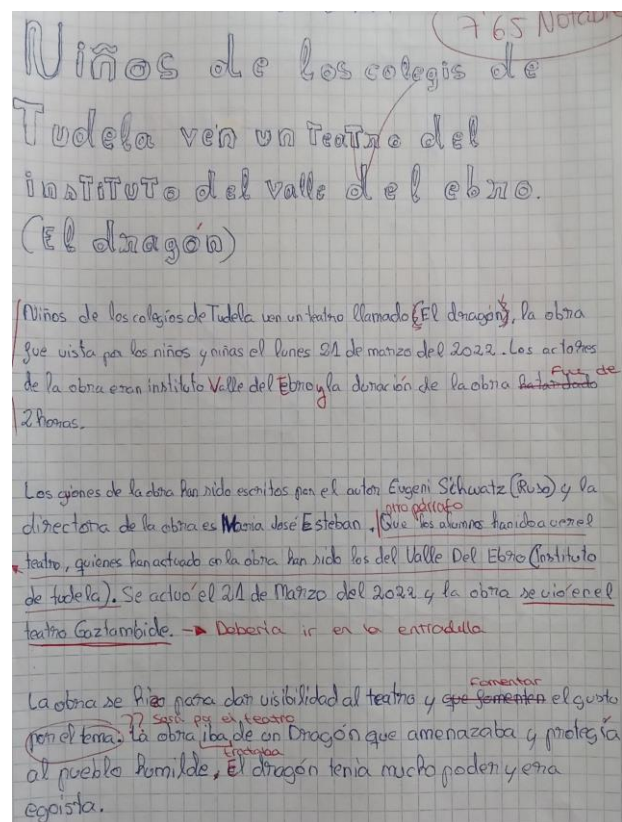 7 65 Notable
Niños de los colegis de
Tudela ven un Teatro del
instituto del valle del ebro.
(El dragón)
Niños de los colegios de Tudela ven un teatro llamado "El dragón", la obra
gue vista por los niños y niñas el lunes 21 de marzo del 2022. Los actores
de la obra eran instituto Valle del Ebro y la duración de la obra fue de
2 horas.
Los giones de la obra han sido escritos por el autor Eugeni Schwatz (Ruso) y la
otro párrafo
directora de la obra es Maria José Esteban. Que los alumnos han ido a ver el
teatro, quienes han actuado en la obra han sido los del Valle Del Ebro (Instituto
de tudela). Se actuó el 21 de Marzo del 2022 y la obra se vio en el
teatro Gaztambide. → Debería ir en la entradilla
fomentar
La obra se hizo para dar visibilidad al teatro y que fomenten el gusto
?? el teatro
por el tema; la obra iba de un Dragón que amenazaba y protegía
al pueblo humilde, El dragón tenia mucho poder y era
egoista.